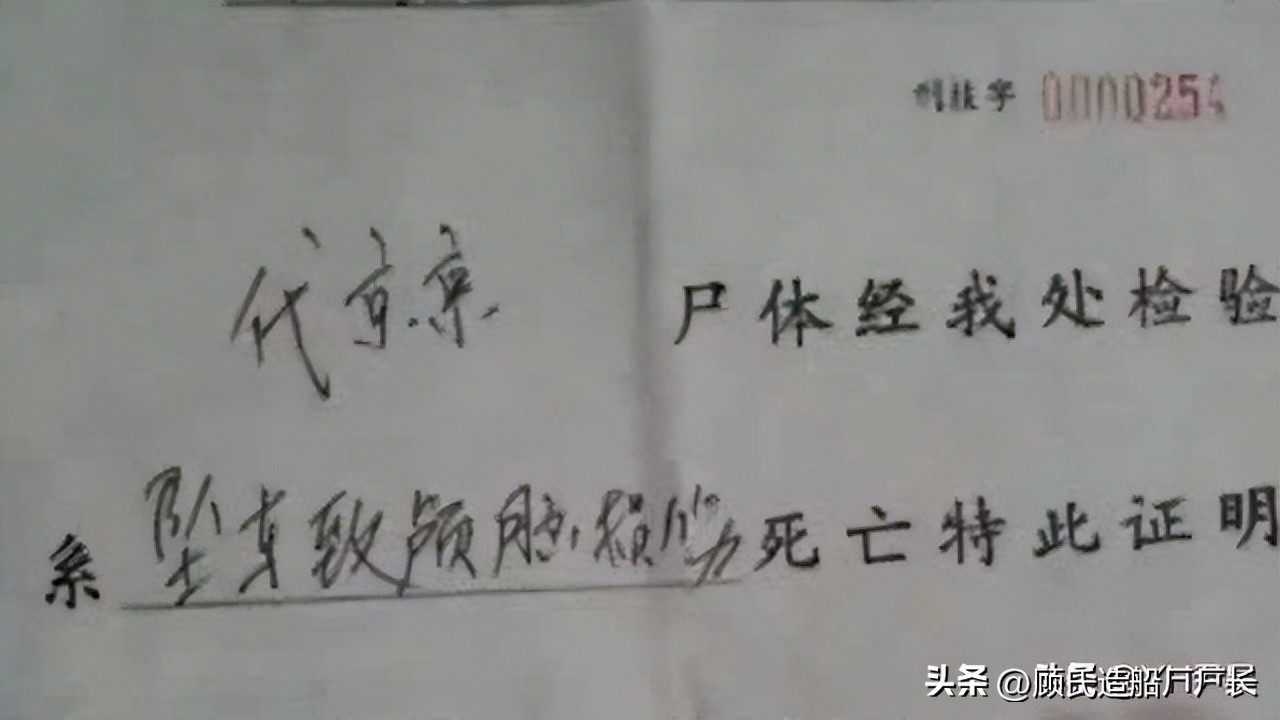 刑技字 0000254
代京京 尸体经我处检验
系 坠车致颅脑损伤 死亡特此证明
头条 @顾民造船厂厂长